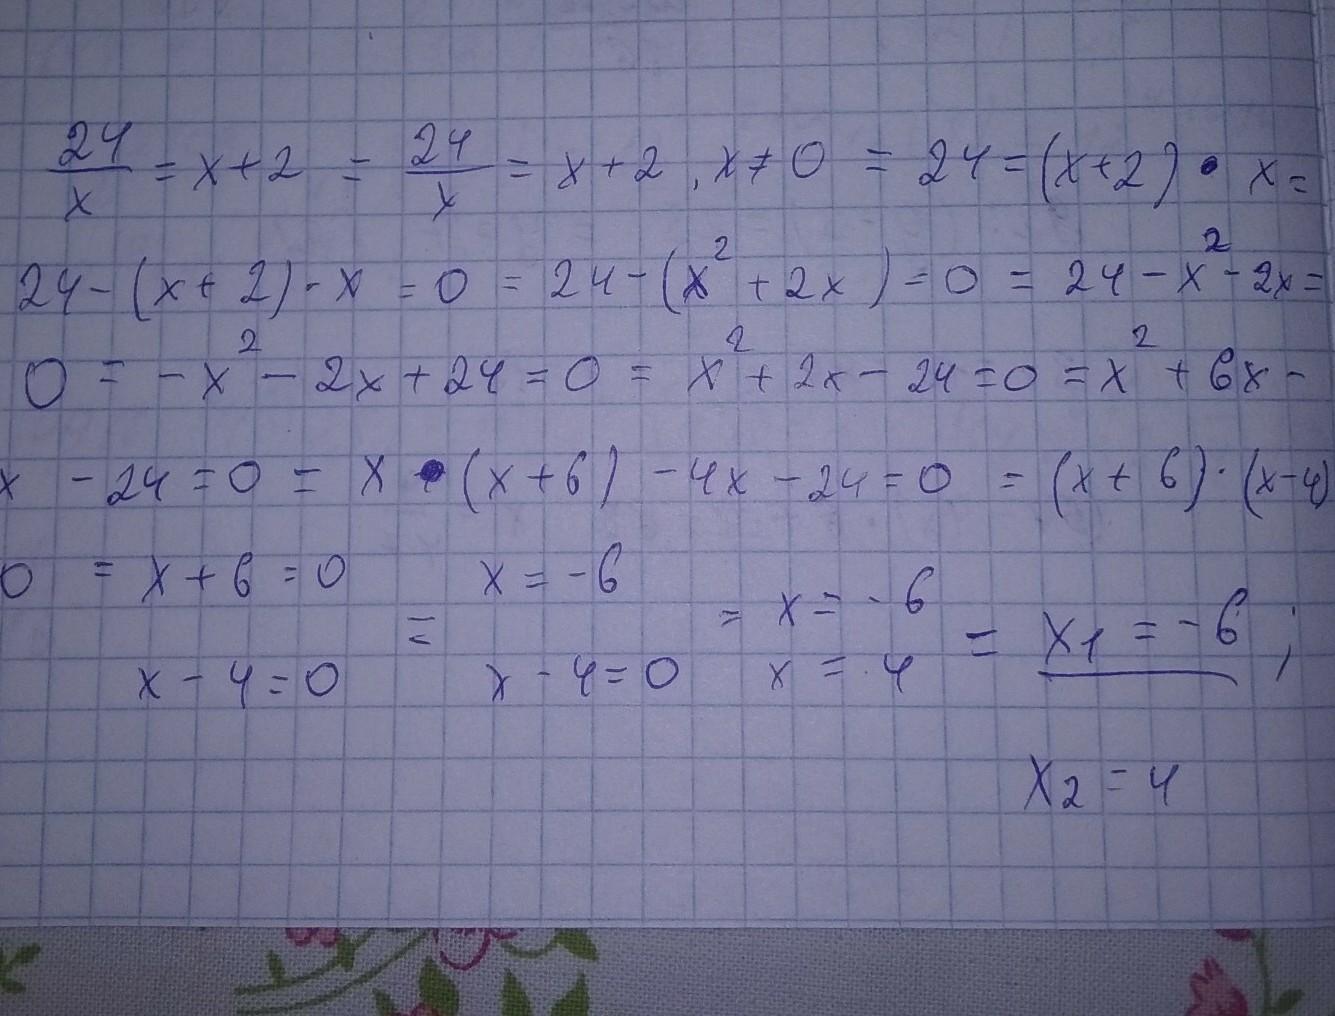 24/x = x+2 = 24/x = x+2, x≠0 = 24=(x+2)·x=
24-(x+2)·x=0 = 24-(x²+2x)=0 = 24-x²-2x=
0 = -x²-2x+24=0 = x²+2x-24=0 = x²+6x-
x -24=0 = x·(x+6)-4x-24=0 = (x+6)·(x-4)
0 = x+6=0 = x=-6 = x=-6 = x1=-6;
x-4=0 x-4=0 x=4
x2=4